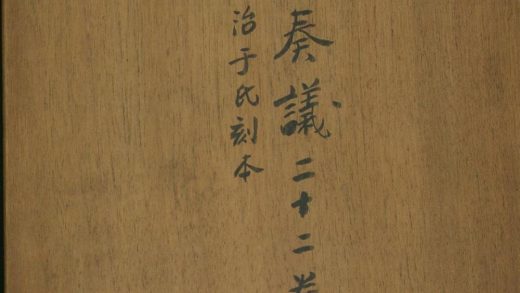 奏議二十二卷
治于氏刻本